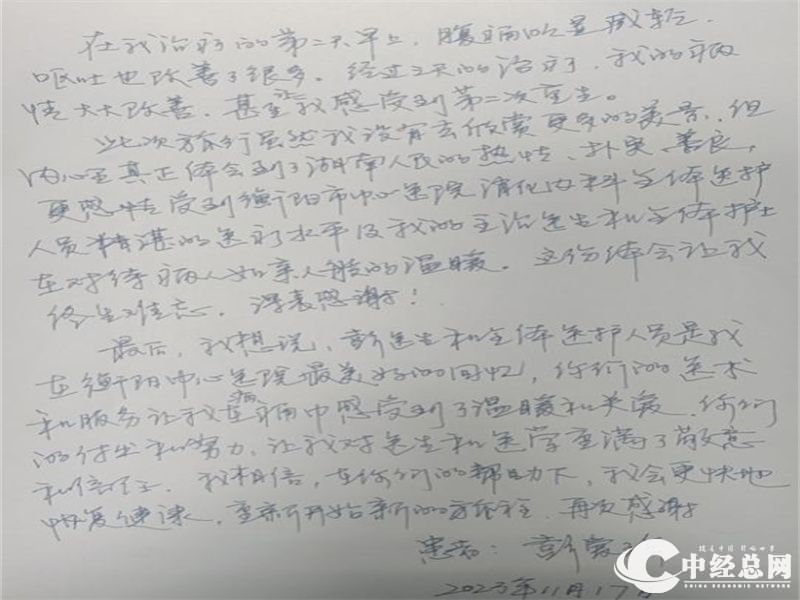 在我治疗的第二天早上，腹痛明显减轻，
呕吐也改善了很多。经过2天的治疗，我的病
情大大改善，甚至让我感受到第二次重生。
此次旅行虽然我没有去欣赏更多的美景，但
内心里真正体会到了湖南人民的热情、朴实、善良，
更感受到衡阳市中心医院消化内科全体医护
人员精湛的医疗水平及我的主治医生和全体护士
在对待病人如亲人般的温暖。这份体会让我
终生难忘，深表感谢！
最后，我想说，彭医生和全体医护人员是我
在衡阳中心医院最美好的回忆，你们的医术
和服务让我在病痛中感受到了温暖和关爱，你们
的付出和努力，让我对医生和医学充满了敬意
和信任。我相信，在你们的帮助下，我会更快地
恢复健康，重新开始新的旅程，再次感谢
患者：彭
2023年11月17日
中经总网
CHINA ECONOMIC NETWORK